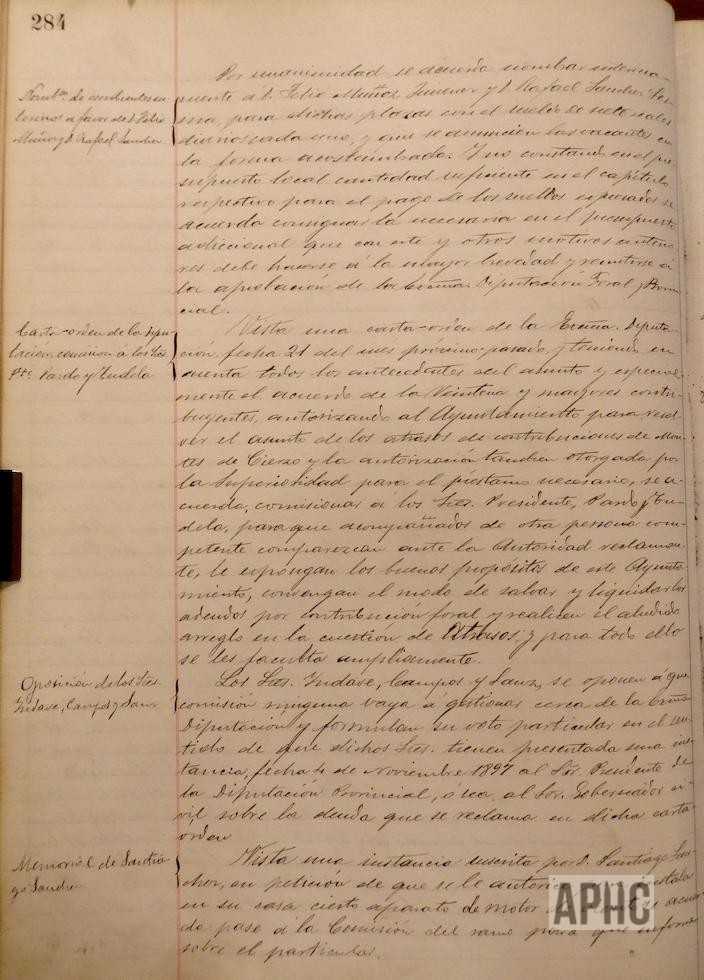 284
Por unanimidad se acuerda nombrar interina-
Nombto. de escribientes in-
terinos a favor de D. Felix
Muñoz y D. Rafael Sanchez
mente á D. Felix Muñoz Jimenez y D. Rafael Sanchez
para dichas plazas con el sueldo de siete reales
diarios cada uno, y que se anuncien las vacantes en
la forma acostumbrada. Y no constando en el pre-
supuesto local cantidad suficiente en el capítulo
respectivo para el pago de los sueldos expresados se
acuerda consignar la necesaria en el Presupuesto
adiccional que con este y otros motivos anterio-
res debe hacerse á la mayor brevedad y remitirse á
la aprobación de la Excma. Diputación Foral y Provin-
cial.
Carta-orden de la Dipu-
tación, comisión a los Sres.
Pte. Pardo y Tudela
Vista una carta-orden de la Excma. Diputa-
ción, fecha 21 del mes próximo-pasado, y teniendo en
cuenta todos los antecedentes del asunto y especial-
mente el acuerdo de la Veintena y mayores contri-
buyentes, autorizando al Ayuntamiento para resol-
ver el asunto de los atrasos de contribuciones de Mon-
tes de Cierzo y la autorización tambien otorgada por
la Superioridad para el préstamo necesario, se a-
cuerda, comisionar á los Sres. Presidente, Pardo y Tu-
dela, para que acompañados de otra persona com-
petente comparezcan ante la Autoridad reclaman-
te, le expongan los buenos propósitos de este Ayunta-
miento, convengan el modo de salvar y liquidar los
adeudos por contribución foral y realicen el aludido
arreglo en la cuestion de Atrasos; y para todo ello
se les faculta ampliamente.
Oposición de los Sres.
Indave, Campos y Sanz
Los Sres. Indave, Campos y Sanz, se oponen á que
comisión ninguna vaya á gestionar cerca de la Excma
Diputacion y formulan su voto particular en el sen-
tido de que dichos Sres. tienen presentada una ins-
tancia, fecha 4 de Noviembre 1897 al Sor. Presidente de
la Diputación Provincial, ó sea al Sor. Gobernador ci-
vil sobre la deuda que se reclama en dicha carta-
orden
Memorial de Santia-
go Sanchez
Vista una instancia suscrita por D. Santiago San-
chez, en petición de que se le autorice instala
en su casa cierto aparato de motor se acuer-
da pase á la Comisión del ramo para que informe
sobre el particular.
APHC